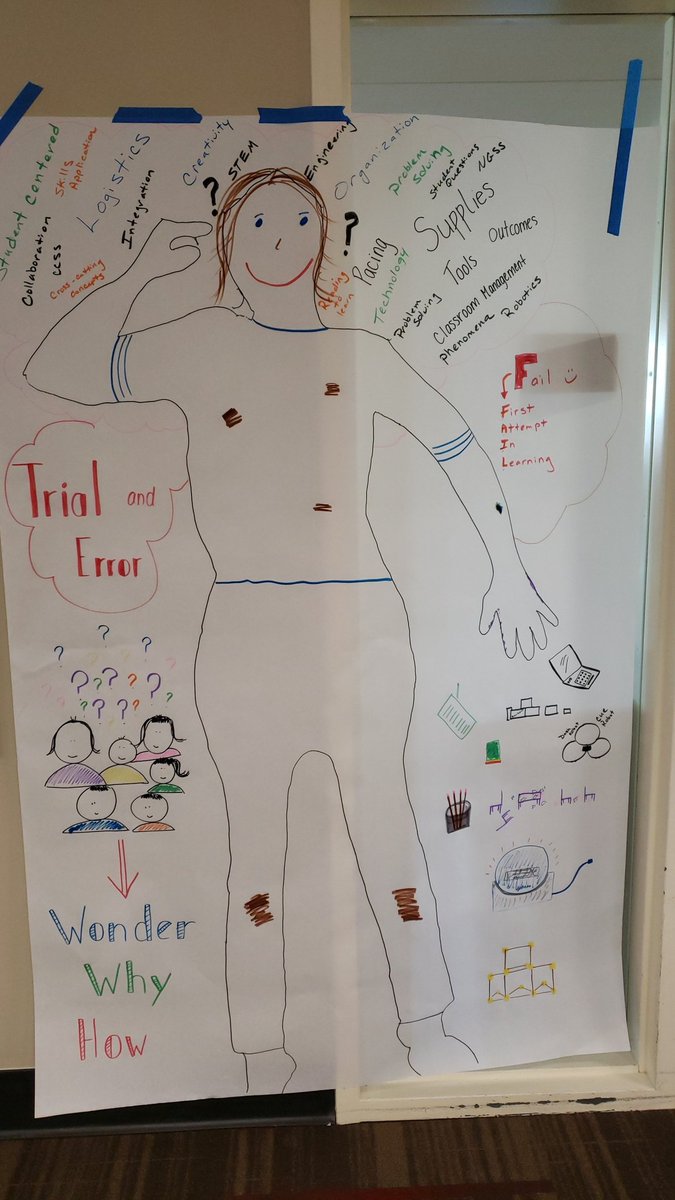 Student Centered
Skills
Application
Logistics
Creativity
STEM
Engineering
Organization
Problem
Solving
Student
Questions
NGSS
Collaboration
CCSS
Cross-cutting
concepts
Integration
?
?
Reading
to
learn
Pacing
Technology
Supplies
Tools
Outcomes
Problem
Solving
Classroom Management
Phenomena
Robotics
Fail
First
Attempt
In
Learning
Trial and
Error
? ? ?
? ? ? ? ? ?
? ? ? ?
Wonder
Why
How